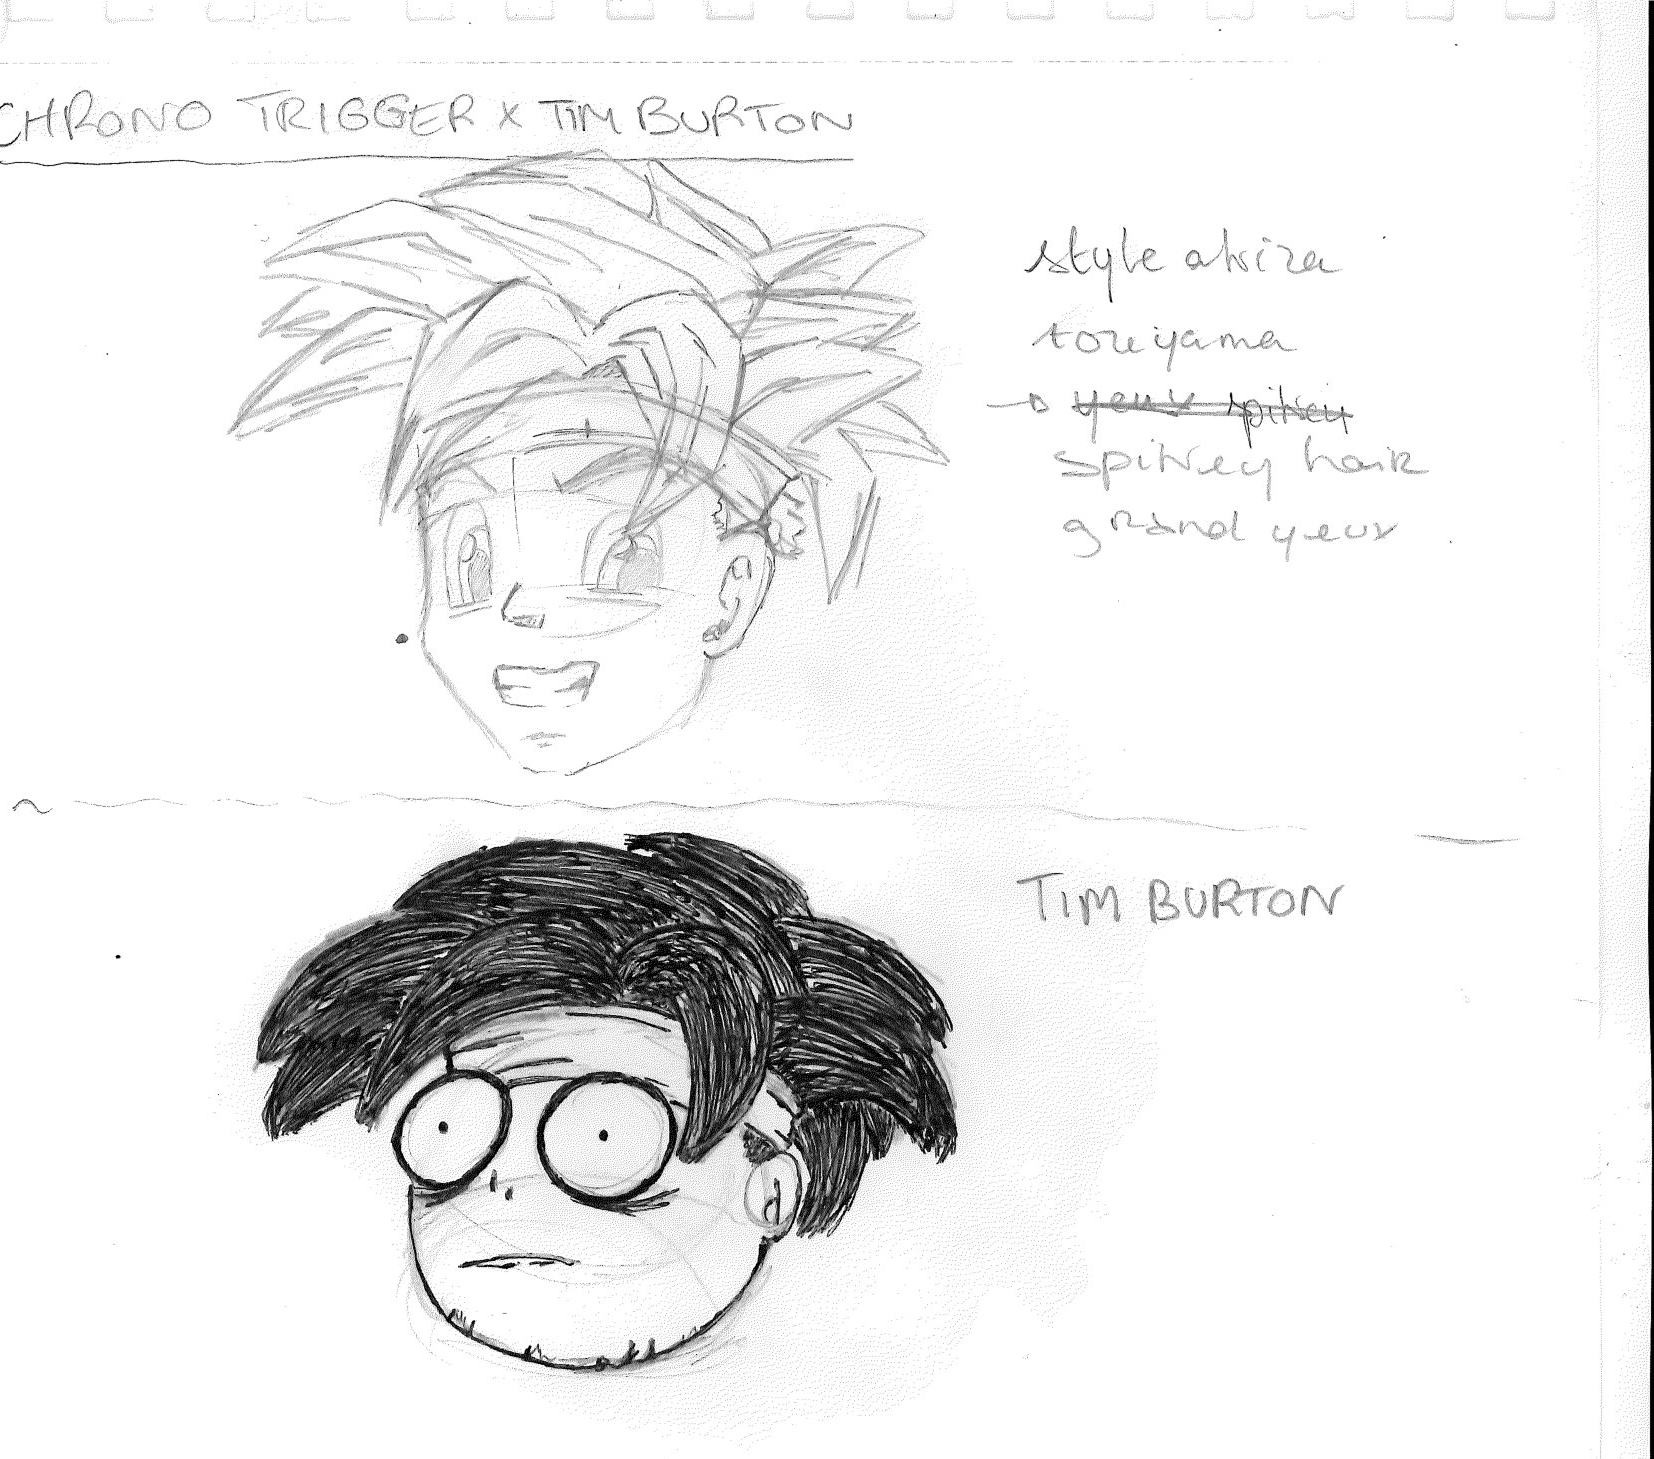 CHRONO TRIGGER X TIM BURTON
style akira
toriyama
→ yeux spikey
spikey hair
grand yeux
TIM BURTON